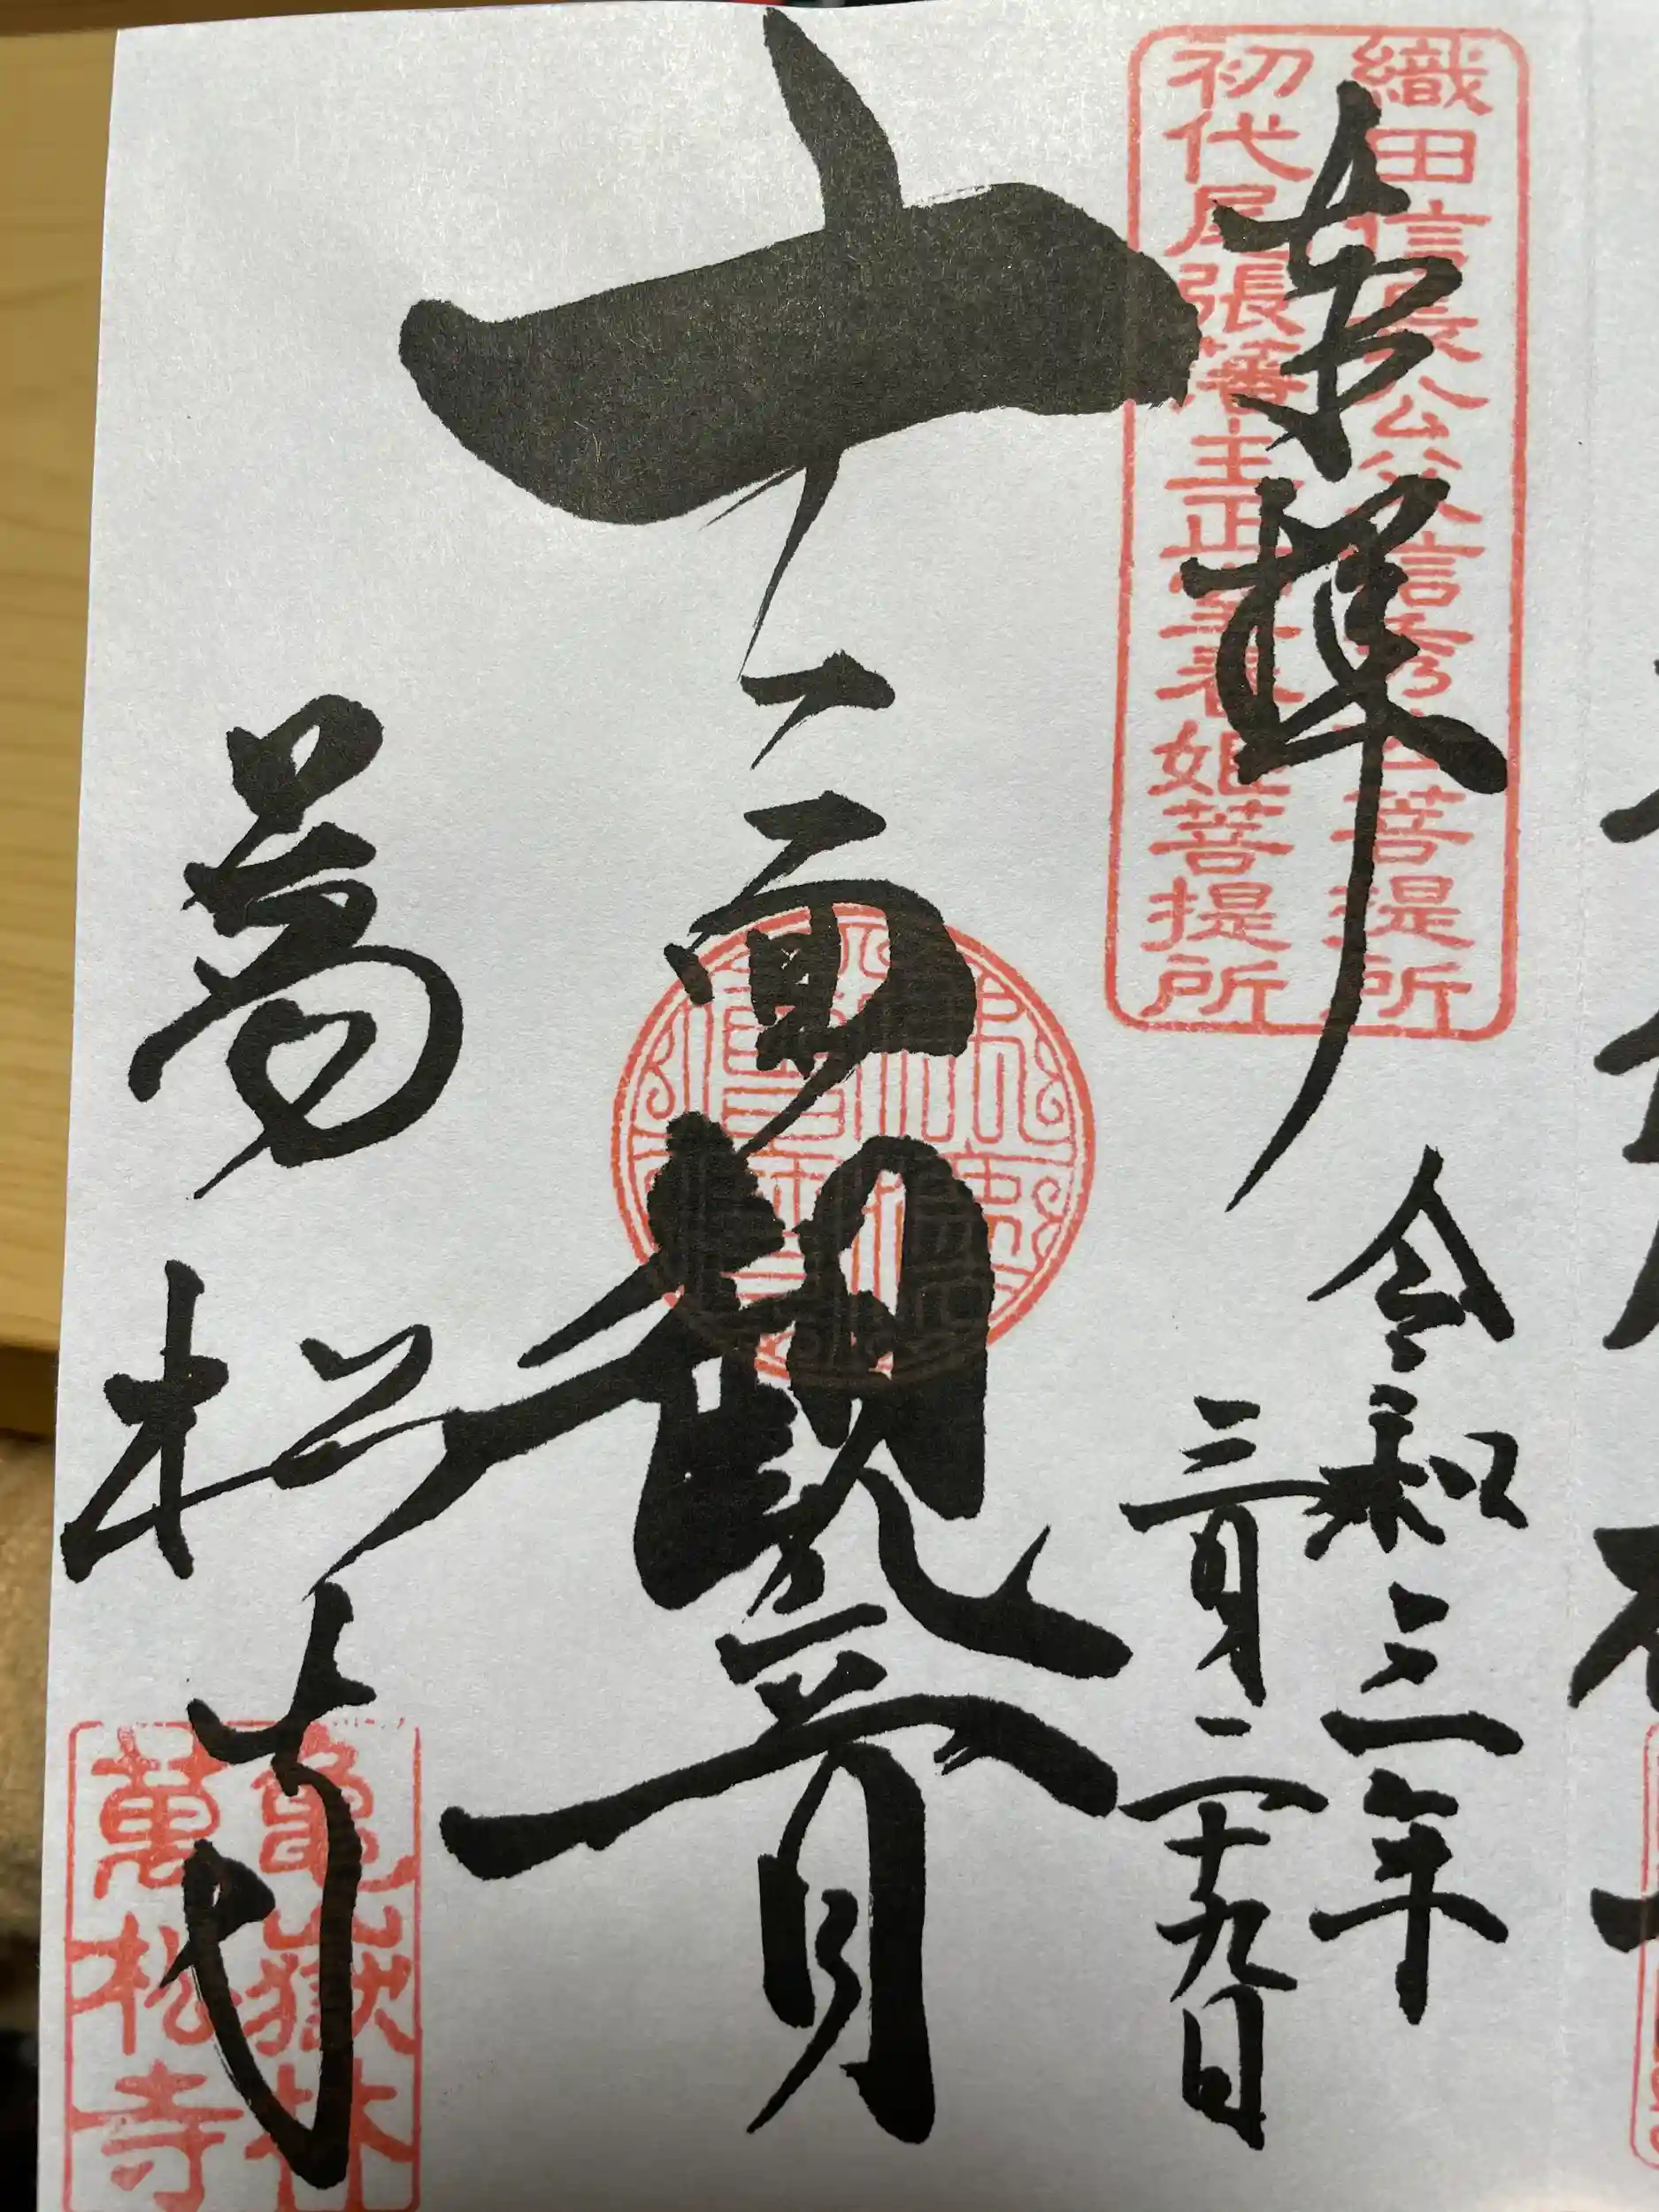 織田信長公父信秀公菩提所
初代尾張藩主正室春姫菩提所
奉拝
令和三年
三月二十九日
十一面観世音
萬松寺
亀嶽林
萬松寺